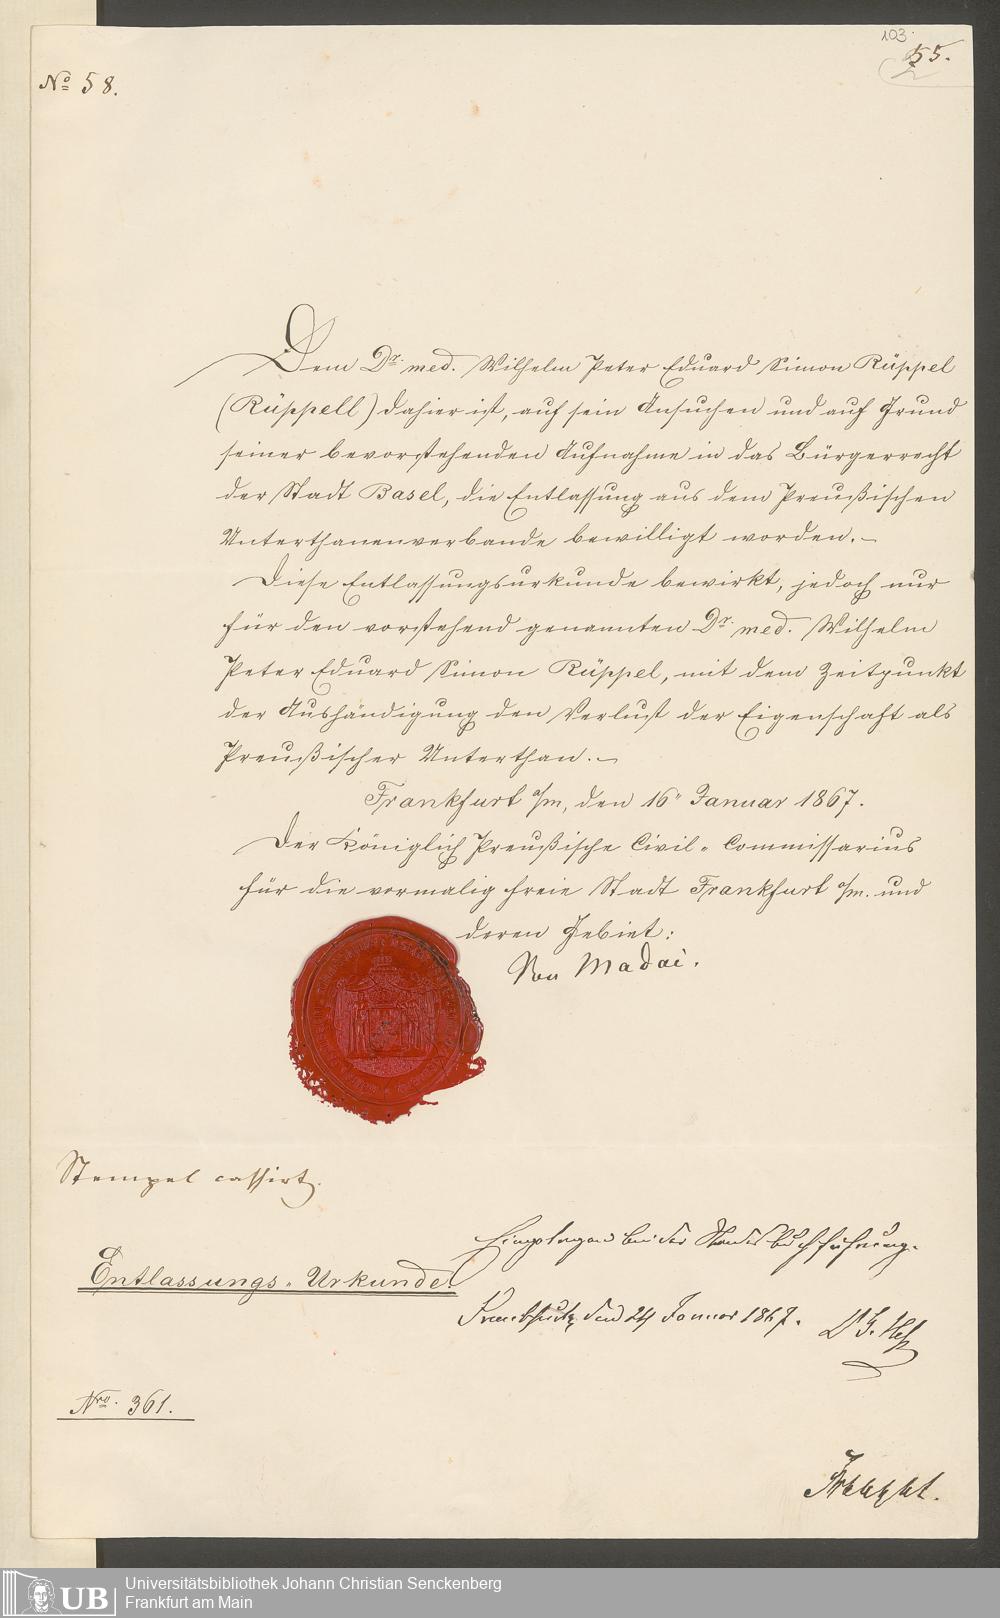 103.
55.
2
No 58.
Dem Dr. med. Wilhelm Peter Eduard Simon Rüppel
(Rüppell) dahier ist, auf sein Ansuchen und auf Grund
seiner bevorstehenden Aufnahme in das Bürgerrecht
der Stadt Basel, die Entlassung aus dem Preußischen
Unterthanenverbande bewilligt worden. –
Diese Entlassungsurkunde bewirkt, jedoch nur
für den vorstehend genannten Dr. med. Wilhelm
Peter Eduard Simon Rüppel, mit dem Zeitpunkt
der Aushändigung den Verlust der Eigenschaft als
Preußischer Unterthan. –
Frankfurt a/m, den 16" Januar 1867.
Der Königlich Preußische Civil-Commissarius
für die vormalig freie Stadt Frankfurt a/m. und
deren Gebiet:
Von Madai.
Stempel cassirt.
Eingetragen bei der Standesbuchführung.
Entlassungs-Urkunde.
Frankfurt, den 24 Januar 1867.
Nro. 361.
Universitätsbibliothek Johann Christian Senckenberg
UB
Frankfurt am Main